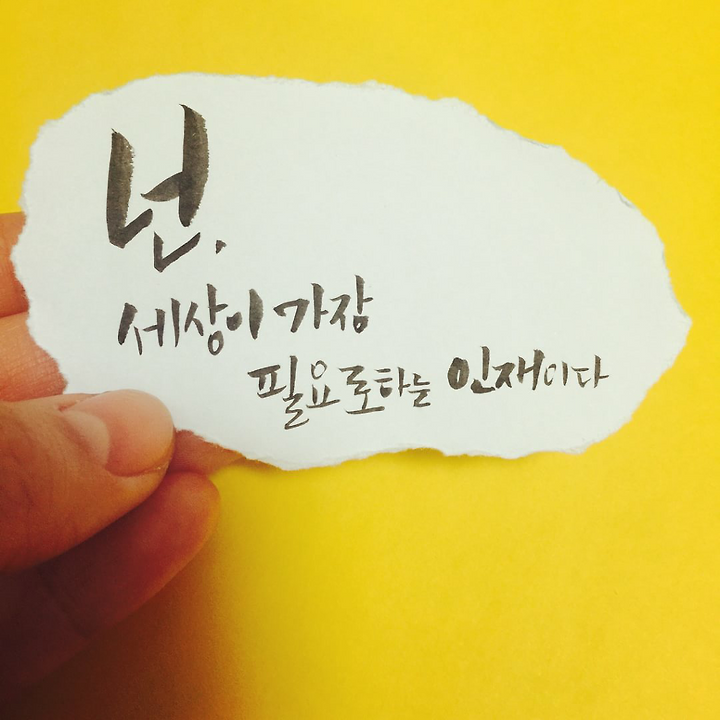 넌.
세상이 가장
필요로하는 인재이다